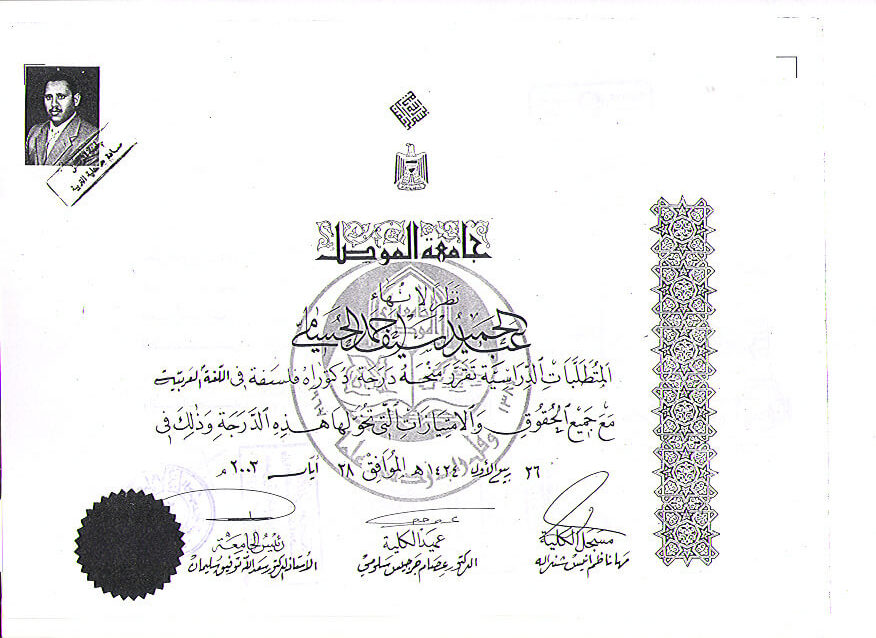 جامعة الموصل
نظراً لإنهاء
عبد الحميد سيف أحمد الحسامي
المتطلبات الدراسية تقرر منحه درجة دكتوراه فلسفة في اللغة العربية
مع جميع الحقوق والامتيازات التي تخولها هذه الدرجة وذلك في
٢٦ ربيع الأول ١٤٢٤ هـ الموافق ٢٨ أيار ٢٠٠٣ م
مسجل الكلية
مها ناظم
عميد الكلية
الدكتور عصام جرجيس سلومي
رئيس الجامعة
الأستاذ الدكتور سعد الله توفيق سليمان